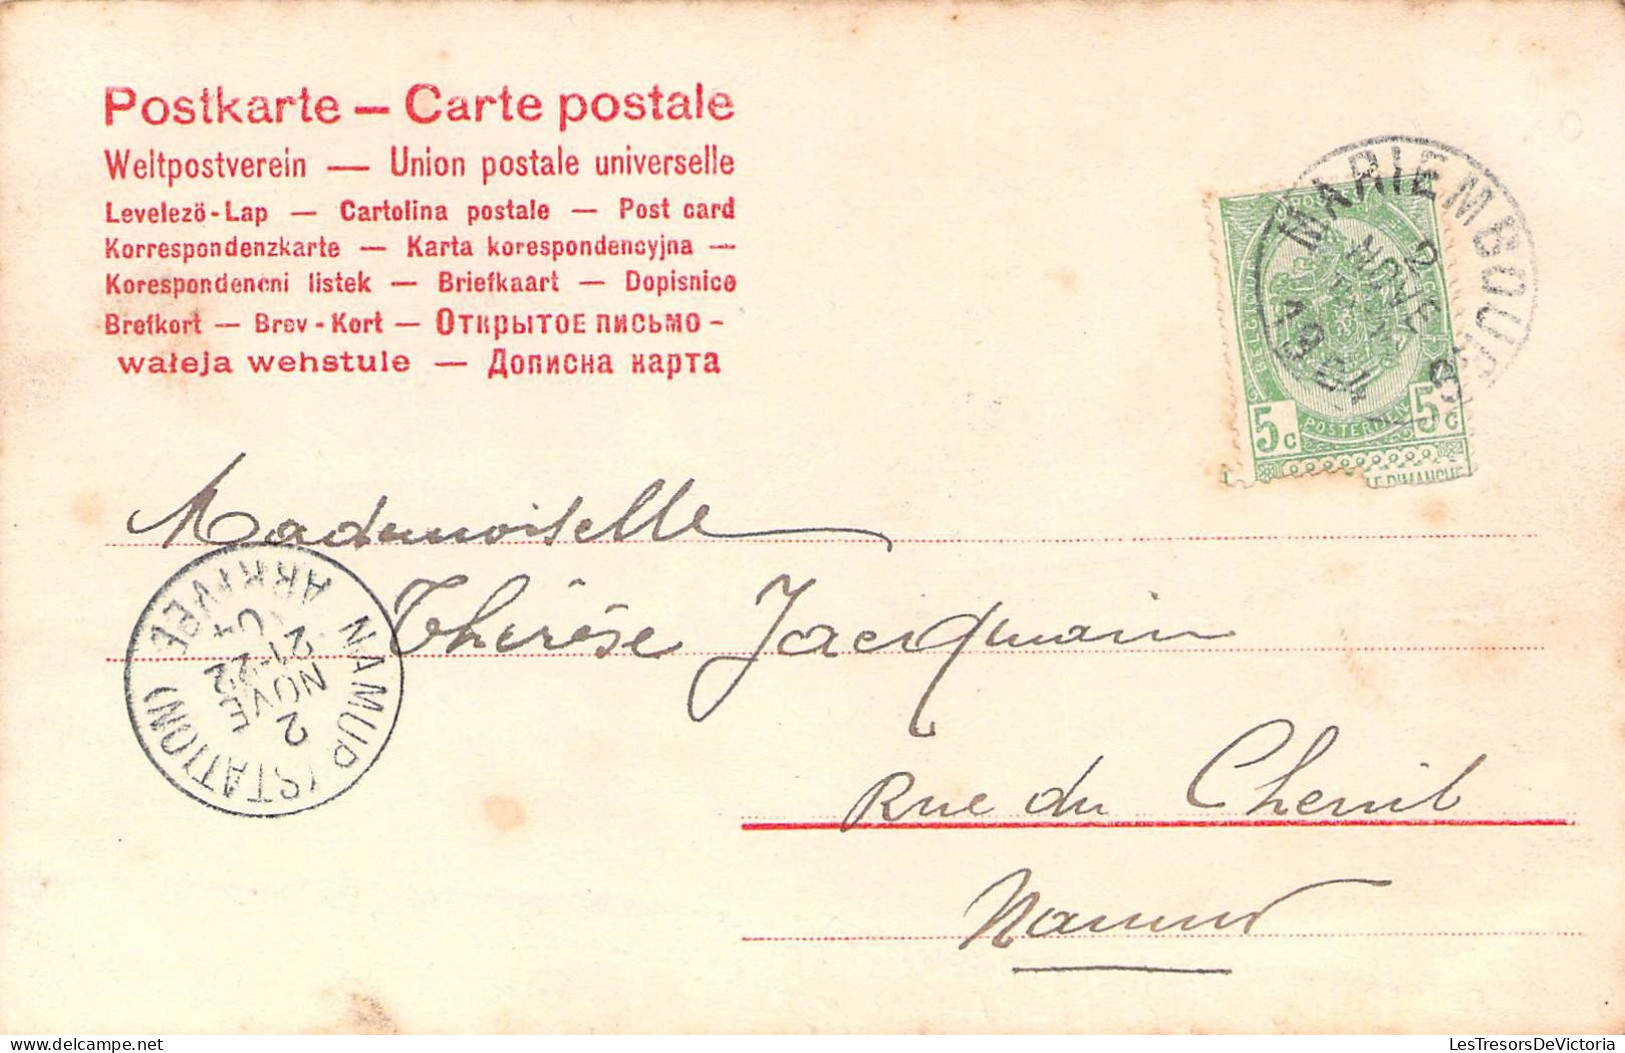 Postkarte — Carte postale
Weltpostverein — Union postale universelle
Levelezö-Lap — Cartolina postale — Post card
Korrespondenzkarte — Karta korespondencyjna —
Korespondencni listek — Briefkaart — Dopisnice
Brefkort — Brev-Kort — Открытое письмо -
wałeja wehstule — Дописна карта
MARIEMBOURG
2
NOVE
1904
5c
POSTERIJEN
5c
LE DIMANCHE
Mademoiselle
Thérèse Jacquain
Rue du Chenil
Namur
NAMUR (STATION)
ARRIVÉE
2
NOVE
21-22
04
LesTresorsDeVictoria
LesTresorsDeVictoria